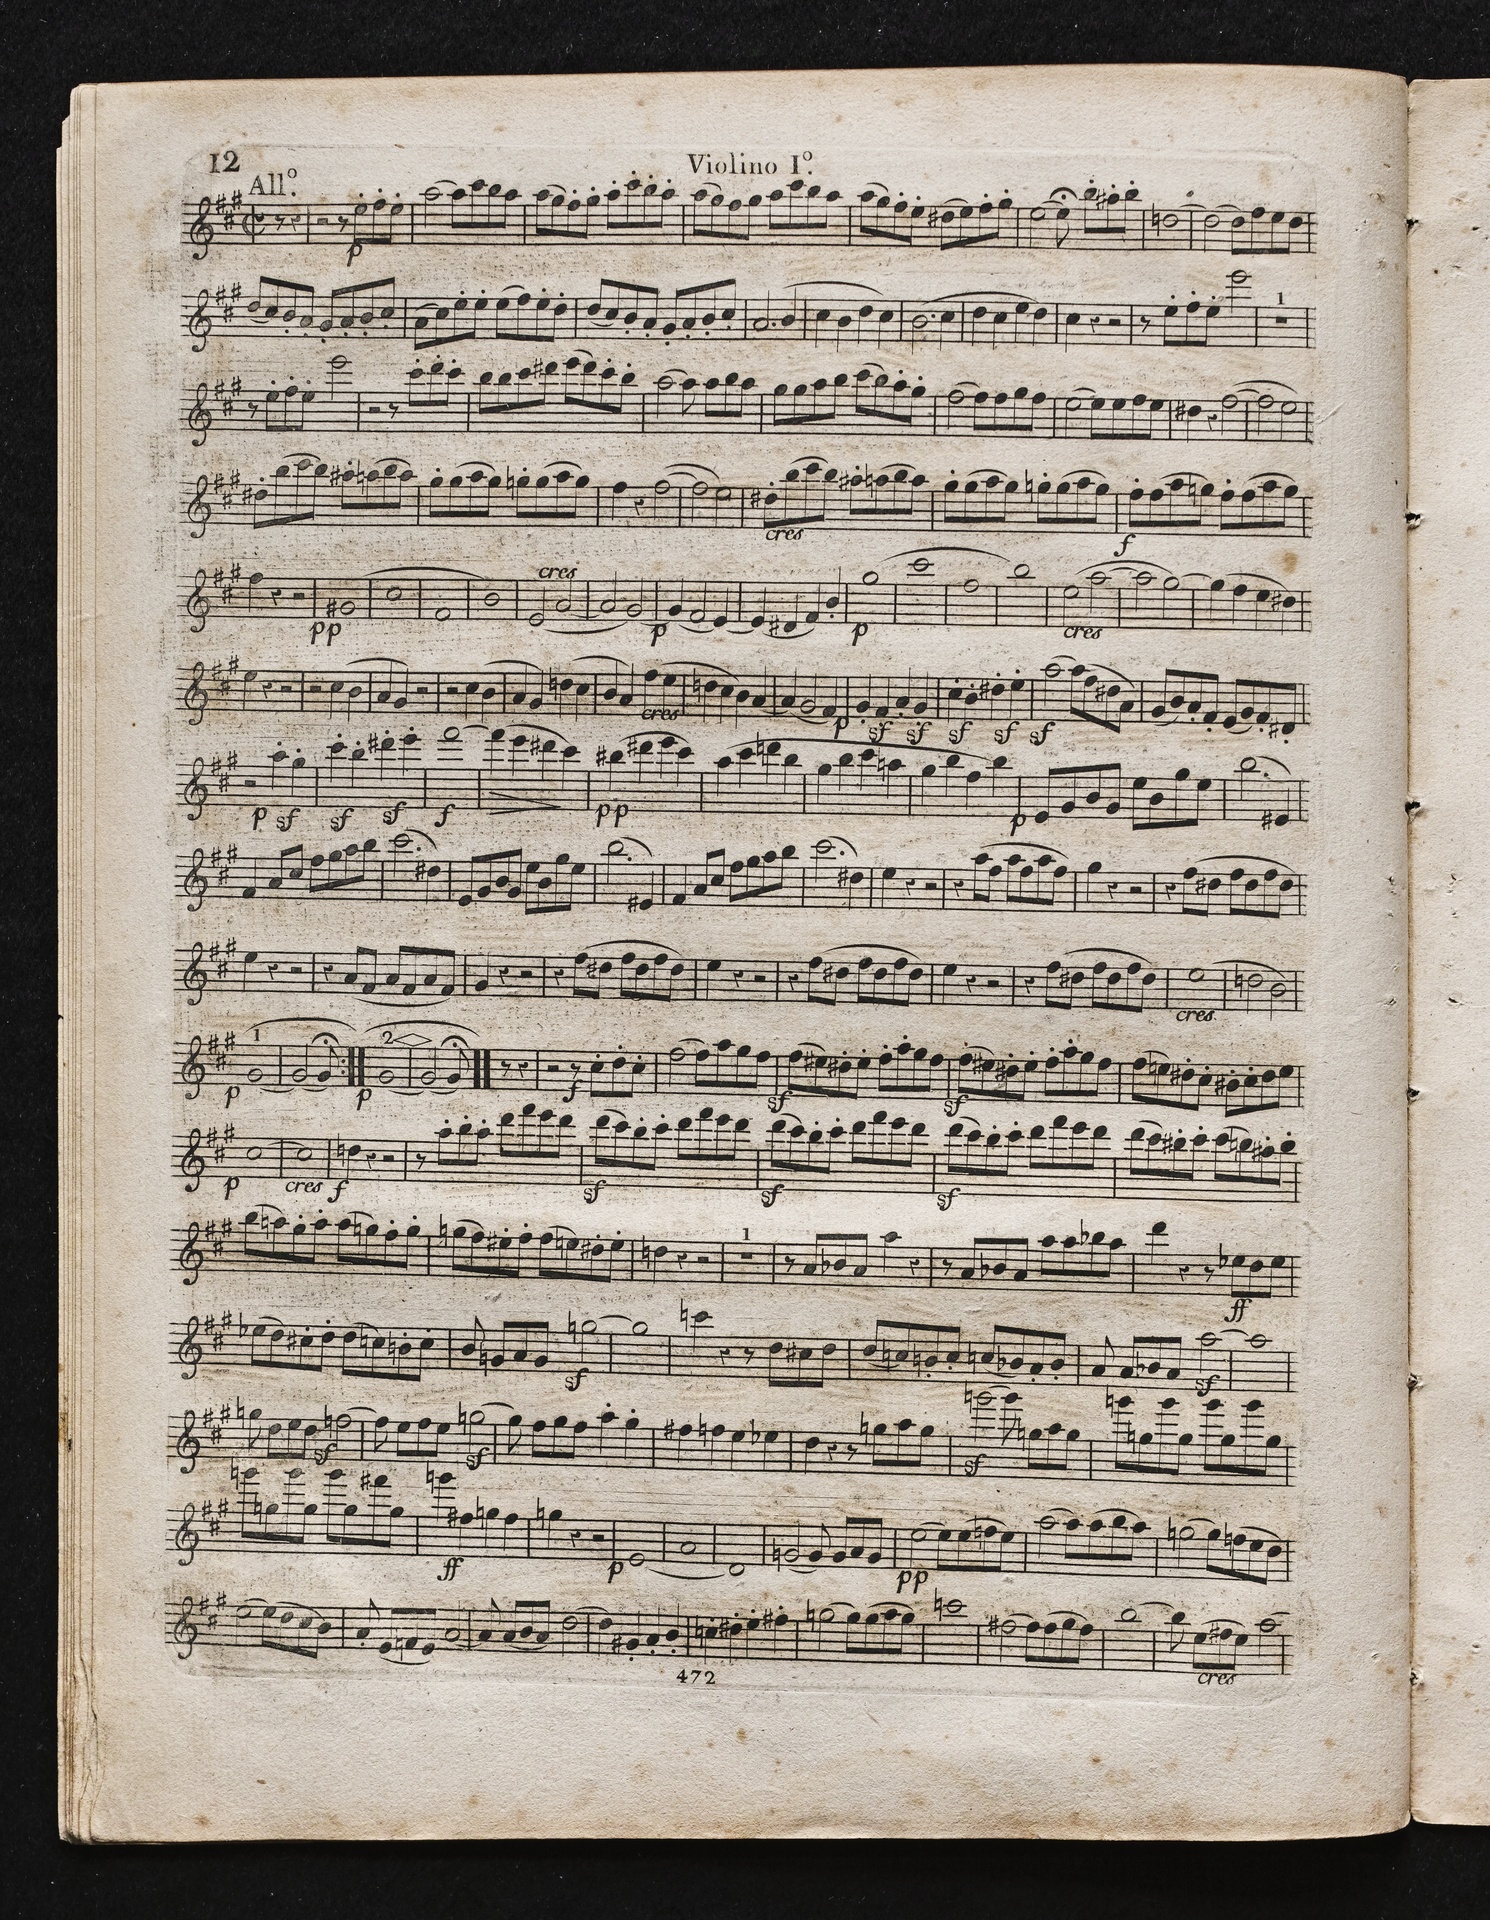 12
Violino Iº.
Allº.
p
1
cres
f
cres
pp p p cres
cres p sf sf sf sf sf
p sf sf sf f pp p
cres.
1 2
p p f sf sf
p cres f sf sf sf
1
ff
sf sf
sf sf sf
ff p pp
cres
472